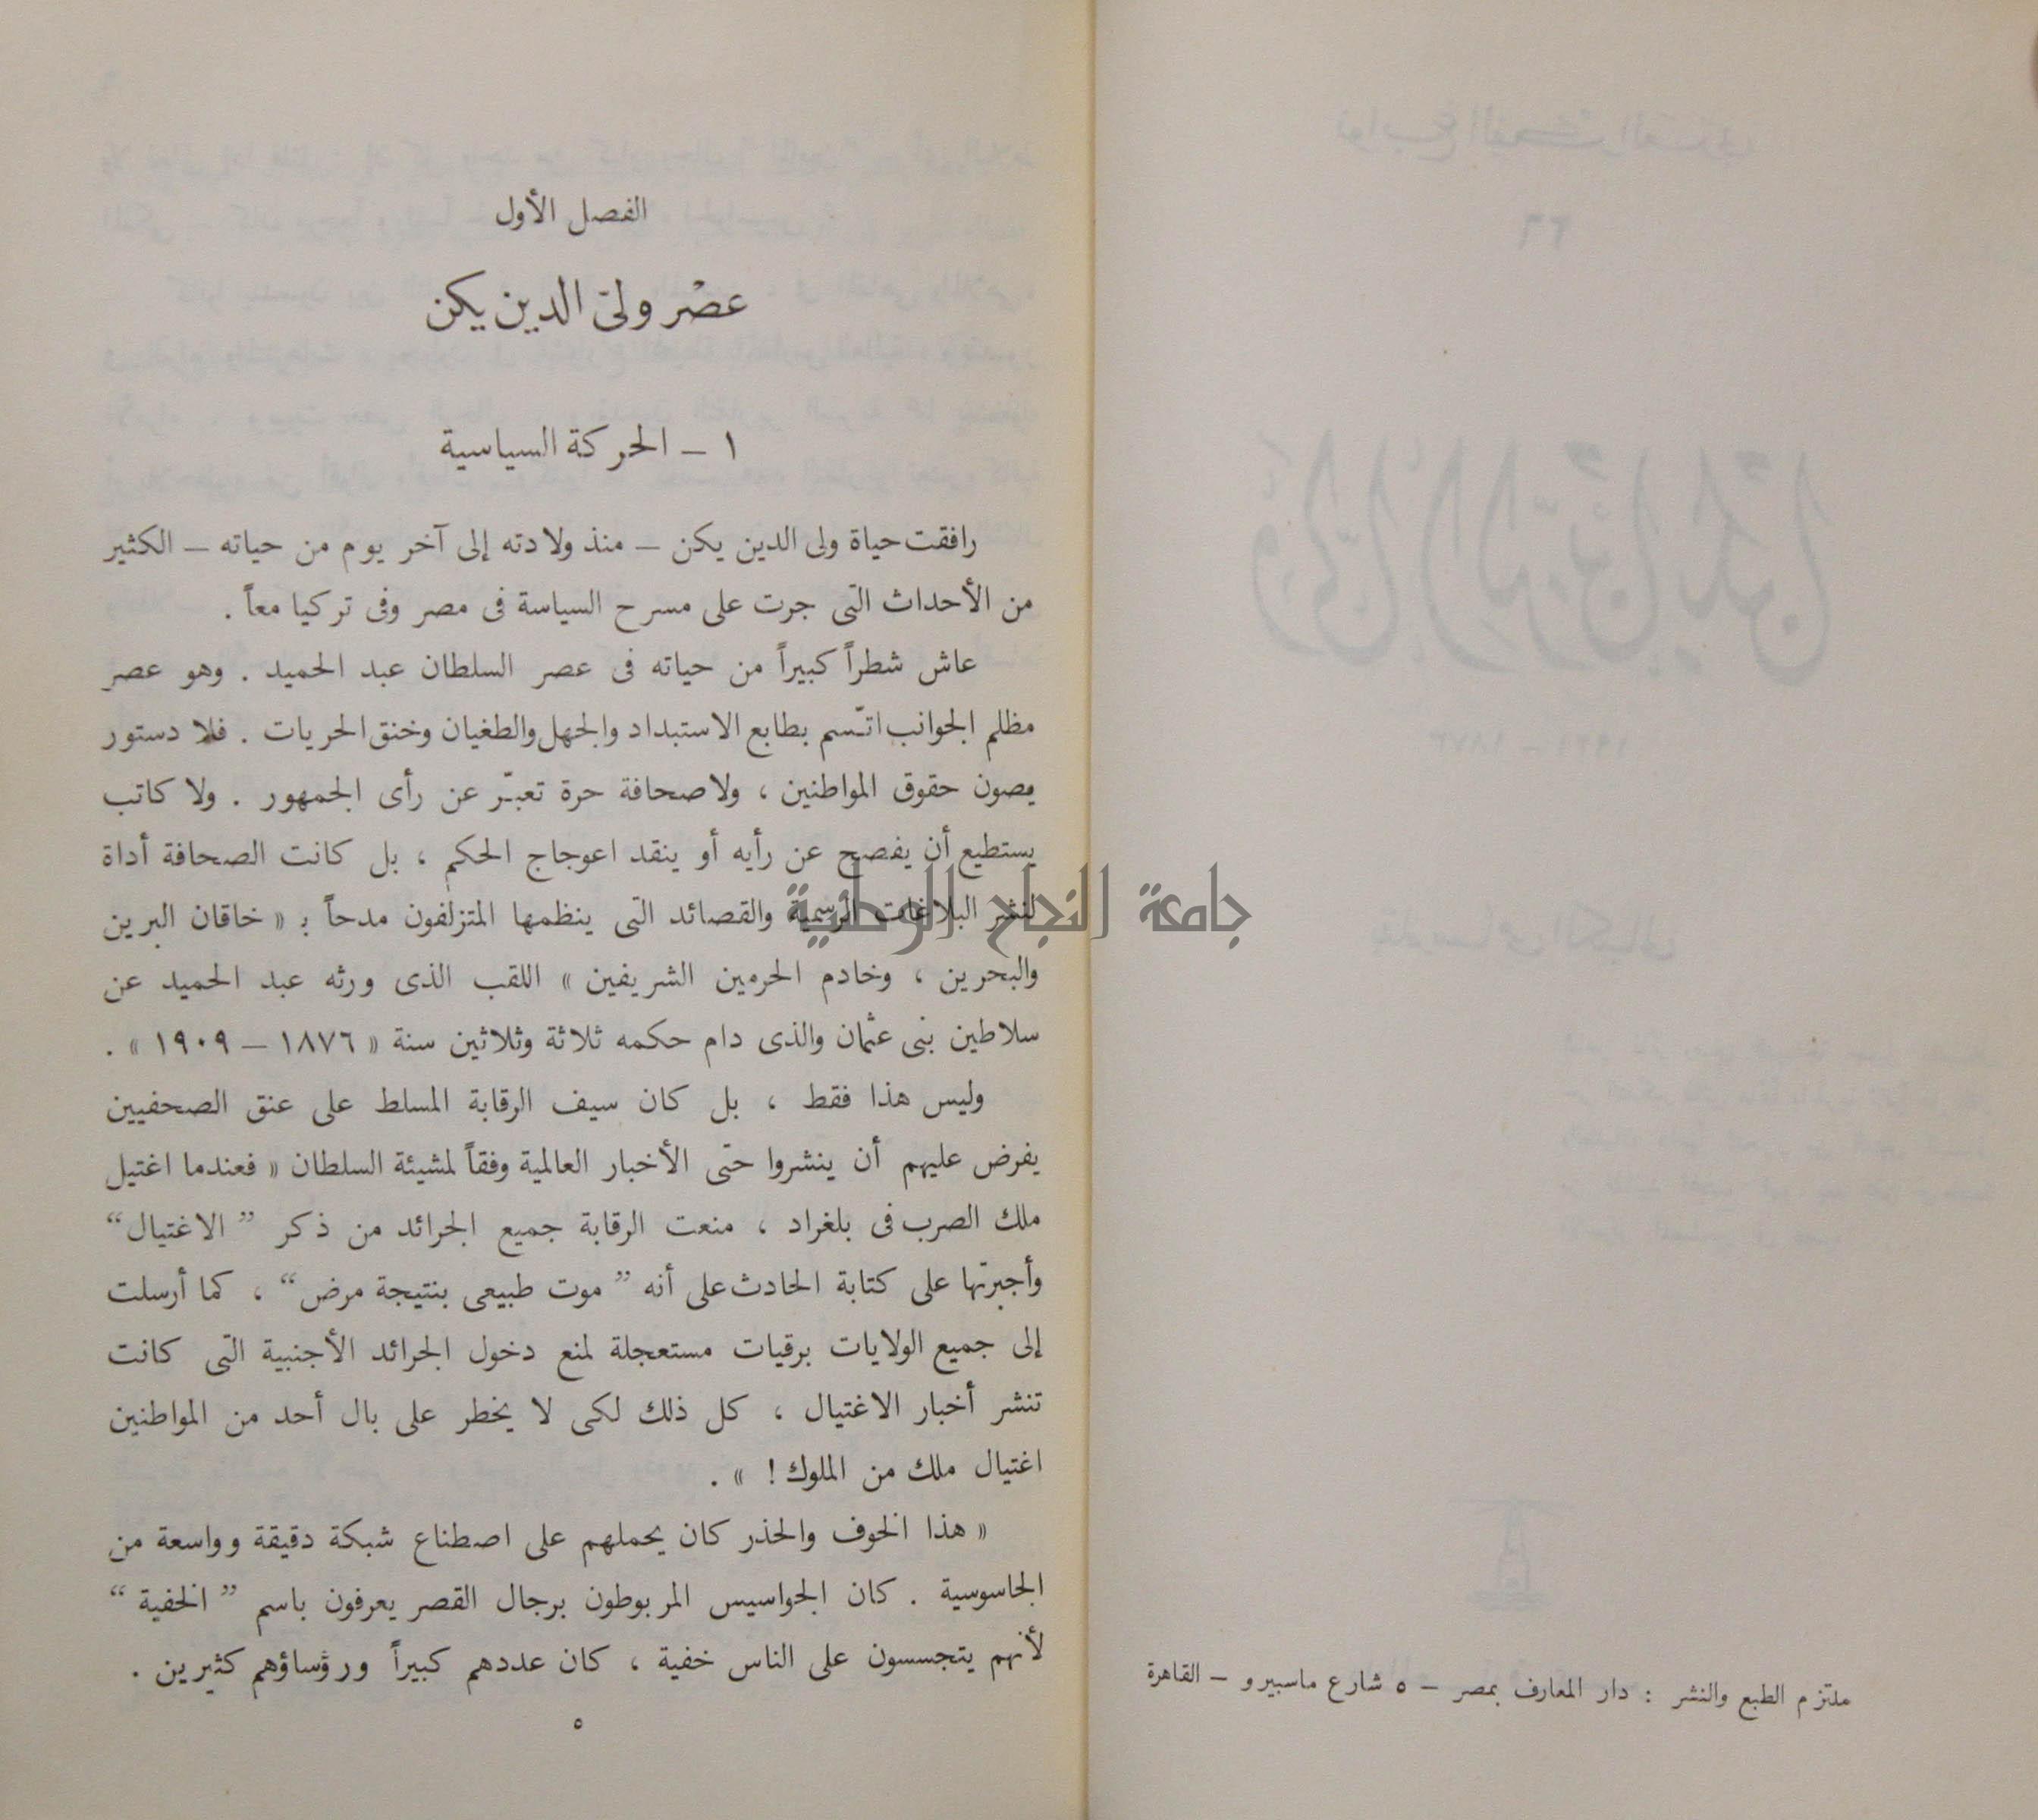 ملتزم الطبع والنشر : دار المعارف بمصر – ٥ شارع ماسبيرو – القاهرة
الفصل الأول
عصْر ولىّ الدين يكن
١ – الحركة السياسية
رافقت حياة ولى الدين يكن – منذ ولادته إلى آخر يوم من حياته – الكثير
من الأحداث التى جرت على مسرح السياسة فى مصر وفى تركيا معاً .
عاش شطراً كبيراً من حياته فى عصر السلطان عبد الحميد . وهو عصر
مظلم الجوانب اتّسم بطابع الاستبداد والجهل والطغيان وخنق الحريات . فلا دستور
يصون حقوق المواطنين ، ولا صحافة حرة تعبّر عن رأى الجمهور . ولا كاتب
يستطيع أن يفصح عن رأيه أو ينقد اعوجاج الحكم ، بل كانت الصحافة أداة
لنشر البلاغات الرسمية والقصائد التى ينظمها المتزلفون مدحاً بـ « خاقان البرين
والبحرين ، وخادم الحرمين الشريفين » اللقب الذى ورثه عبد الحميد عن
سلاطين بنى عثمان والذى دام حكمه ثلاثة وثلاثين سنة « ١٨٧٦ – ١٩٠٩ » .
وليس هذا فقط ، بل كان سيف الرقابة المسلط على عنق الصحفيين
يفرض عليهم أن ينشروا حتى الأخبار العالمية وفقاً لمشيئة السلطان « فعندما اغتيل
ملك الصرب فى بلغراد ، منعت الرقابة جميع الجرائد من ذكر ”الاغتيال“
وأجبرتها على كتابة الحادث على أنه ”موت طبيعى بنتيجة مرض“ ، كما أرسلت
إلى جميع الولايات برقيات مستعجلة لمنع دخول الجرائد الأجنبية التى كانت
تنشر أخبار الاغتيال ، كل ذلك لكى لا يخطر على بال أحد من المواطنين
اغتيال ملك من الملوك ! » .
« هذا الخوف والحذر كان يحملهم على اصطناع شبكة دقيقة وواسعة من
الجاسوسية . كان الجواسيس المربوطون برجال القصر يعرفون باسم ”الخفية“
لأنهم يتجسسون على الناس خفية ، كان عددهم كبيراً ورؤساؤهم كثيرين .
٥
جامعة النجاح الوطنية